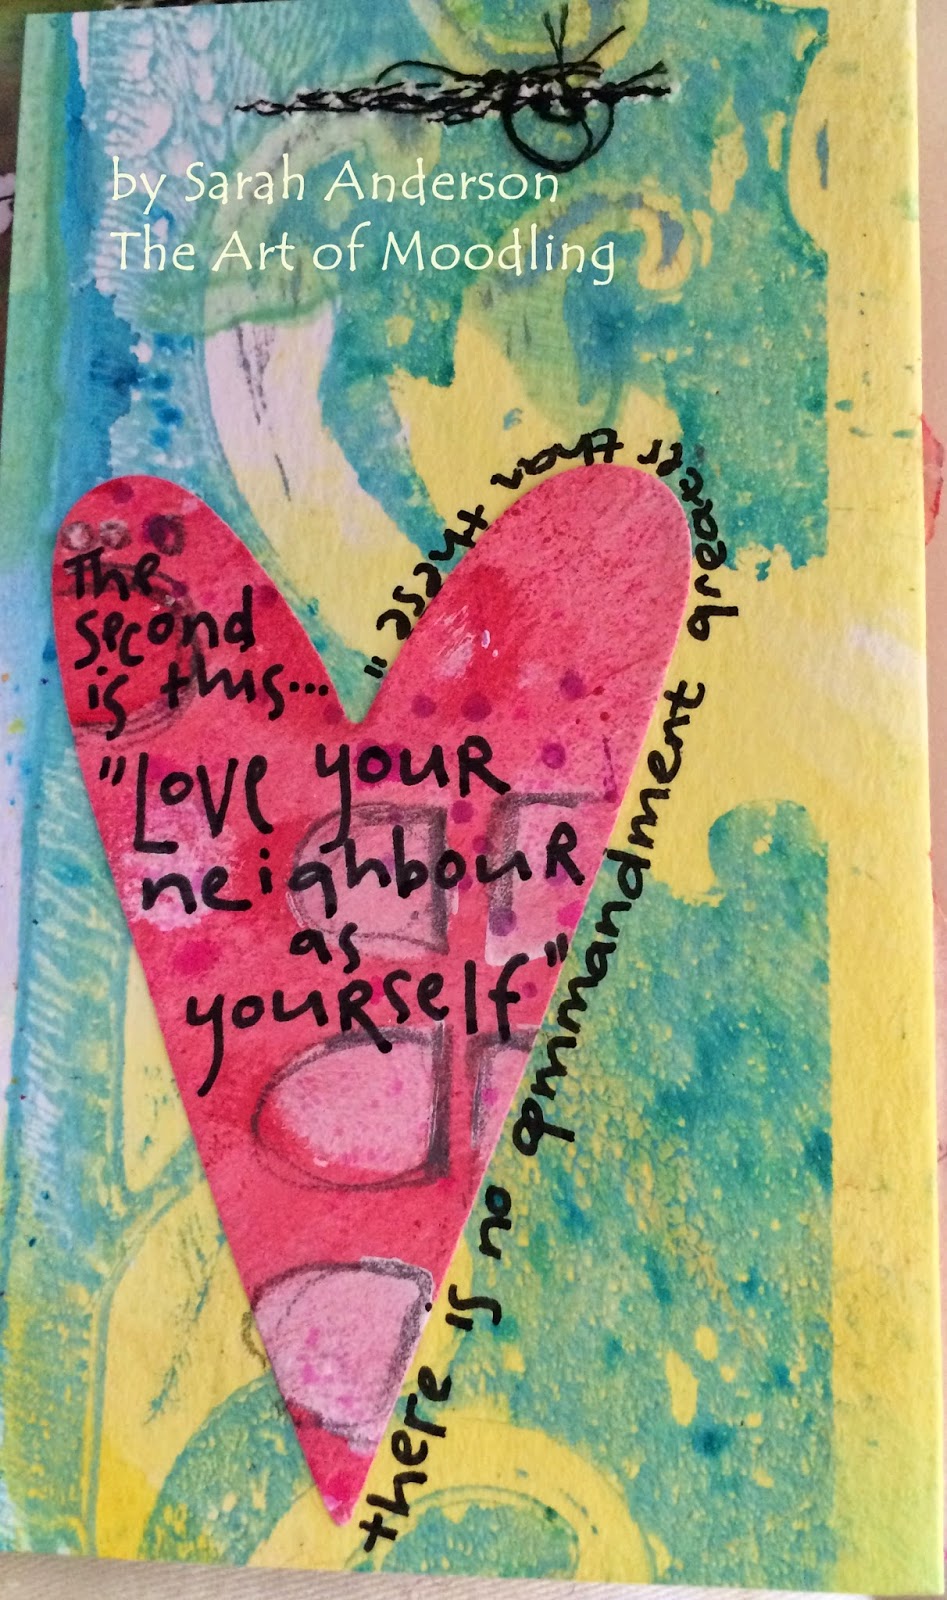 by Sarah Anderson
The Art of Moodling
The
second
is this...
"Love your
neighbour
as
yourself"
there is no commandment greater than these"